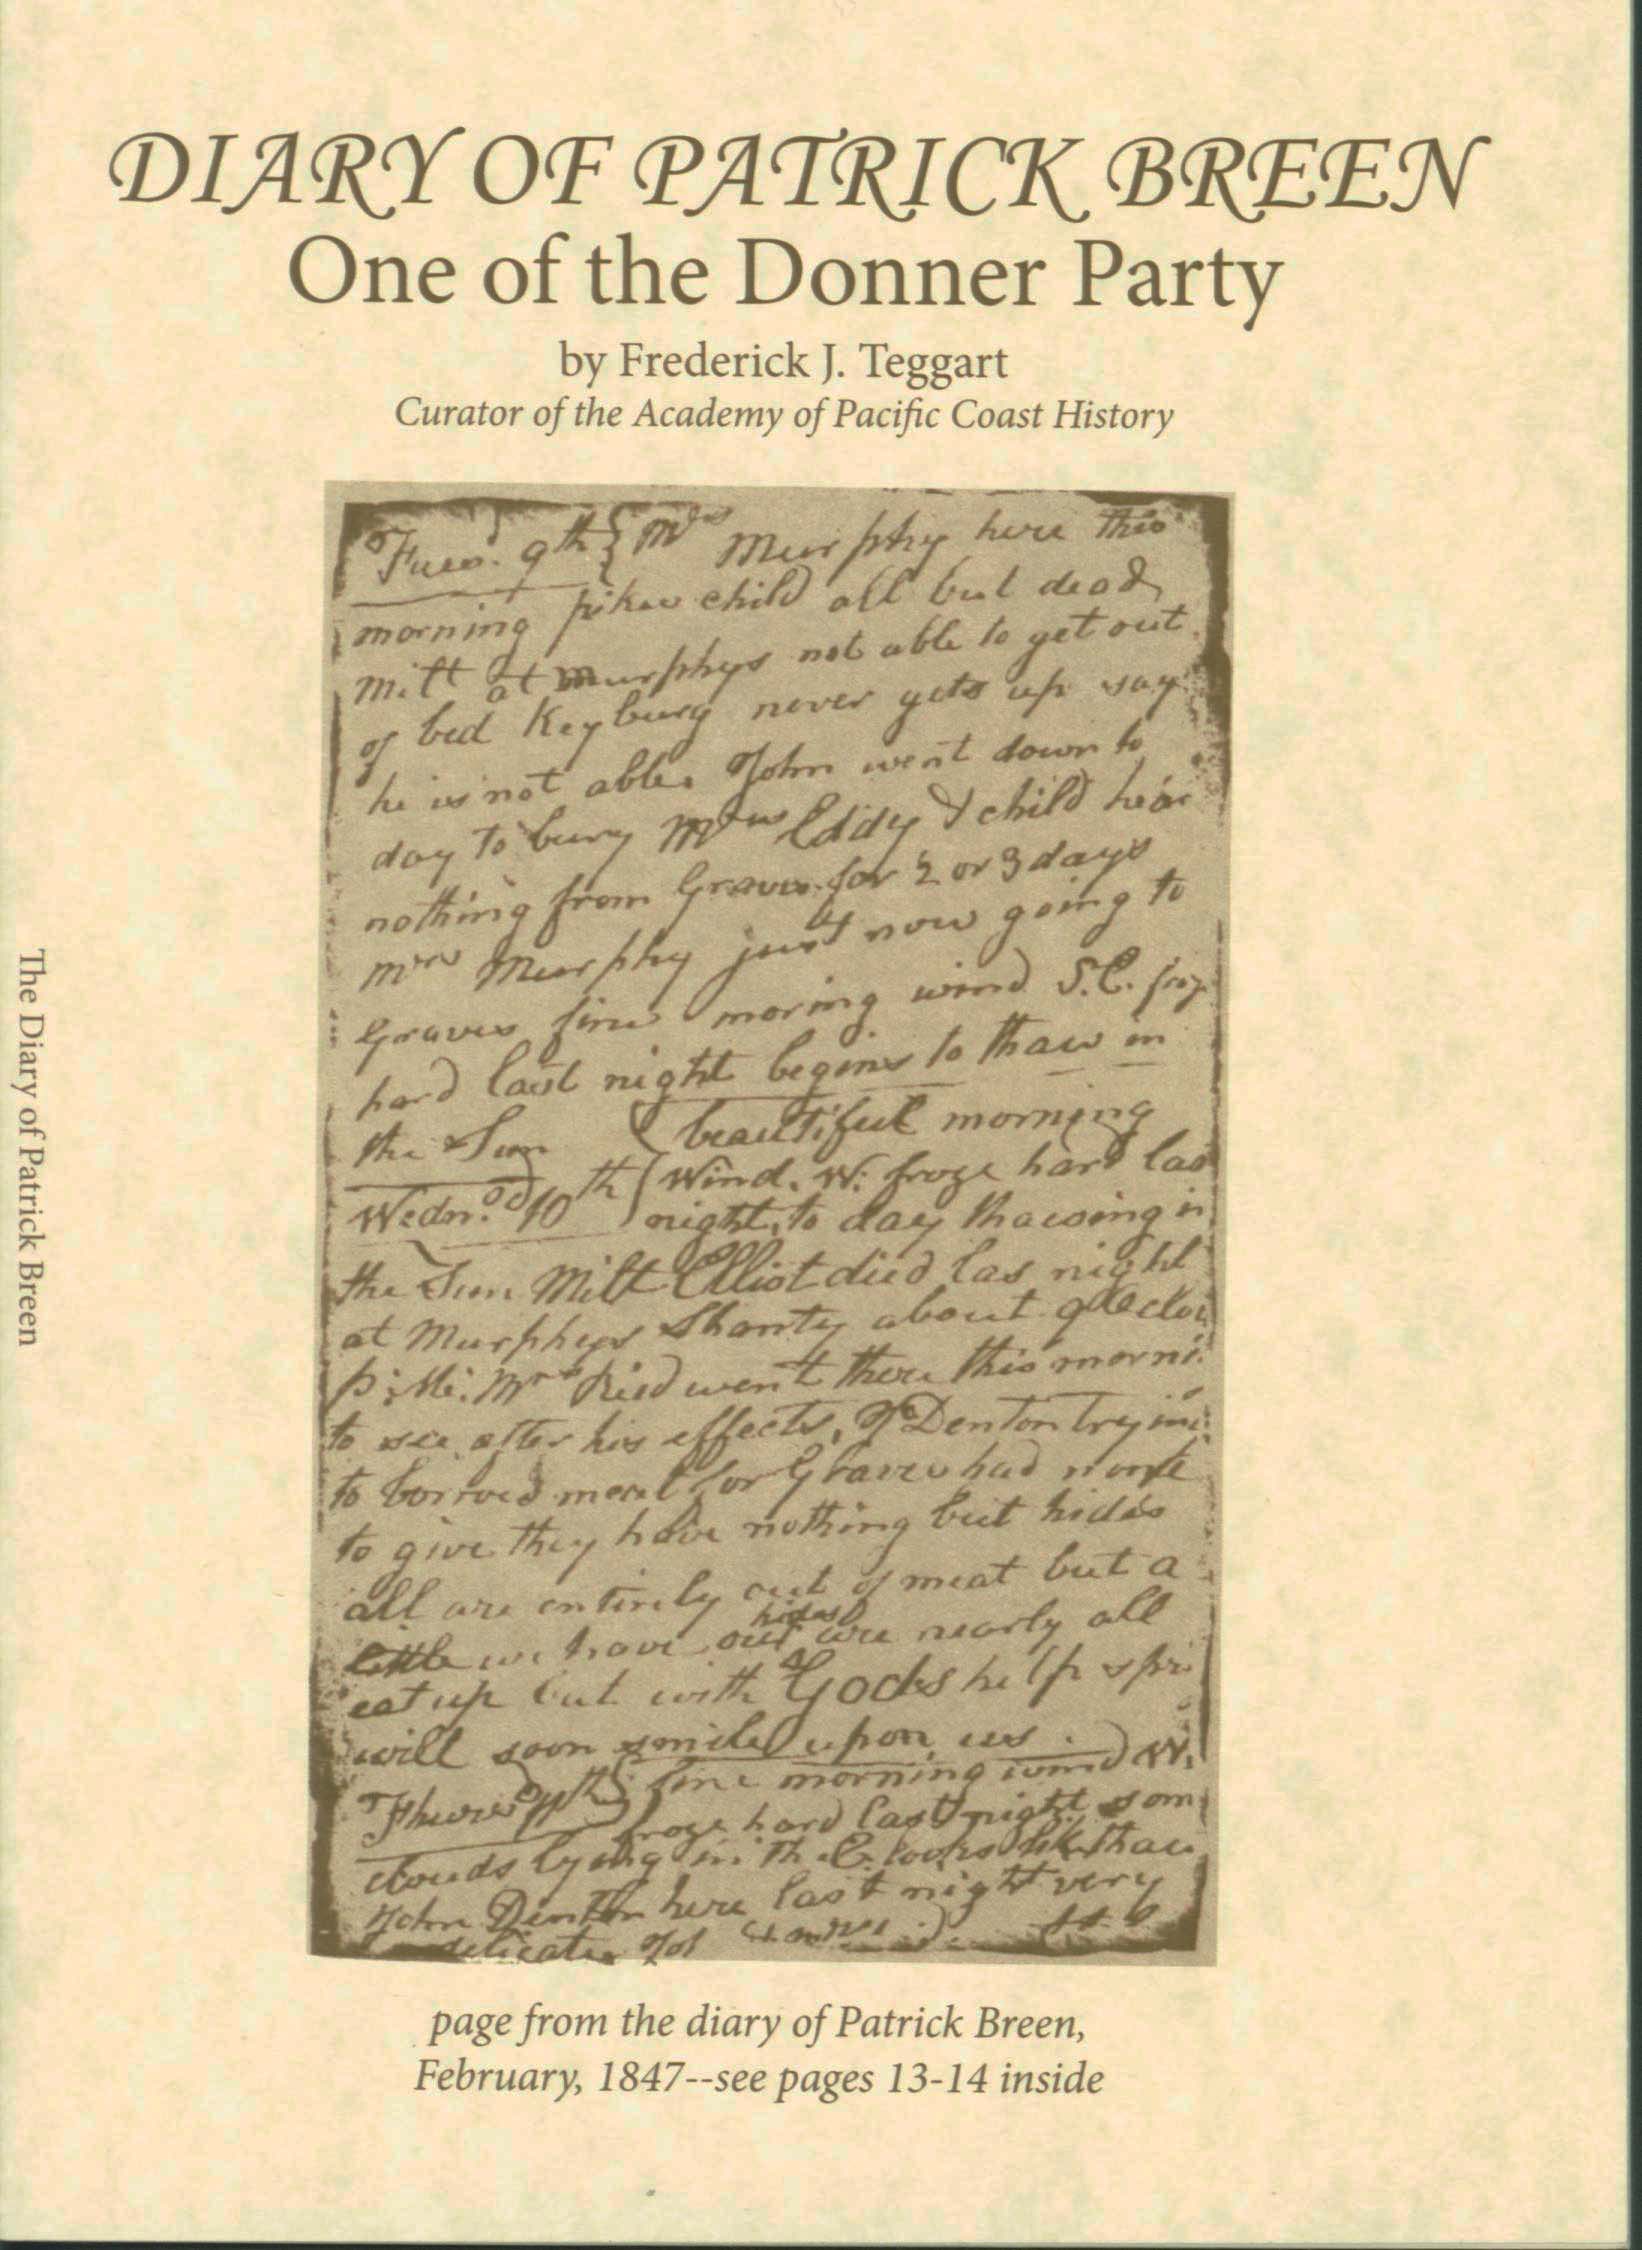 DIARY OF PATRICK BREEN
One of the Donner Party
by Frederick J. Teggart
Curator of the Academy of Pacific Coast History
Tuesd. 9th { Mrs Murphy here this
morning pikes child all but dead
Milt at Murphys not able to get out
of bed Keyburg never gets up say
he is not able. John went down to
day to bury Mrs Eddy & child hear
nothing from Graves for 2 or 3 days
Mrs Murphy just now going to
Graves fine moring wind S.E. froz
hard last night begins to thaw in
the Sun
{ beautiful morning
Wednd. 10th { Wind. W. froze hard las
night, to day thawing in
the Sun Milt Elliot died las night
at Murphys Shanty about 9 Oclock
P: M: Mrs Reed went there this morni
to see after his effects, J Denton trying
to borrow meat for Graves had none
to give they have nothing but hides
all are entirely out of meat but a
little we have our hides are nearly all
eat up but with Gods help spri
will soon smile upon us.
Thursd 11th { fine morning wind W.
froze hard last night som
clouds lying in the E. looks like thaw
John Denton here last night very
delicate. Joh
page from the diary of Patrick Breen,
February, 1847--see pages 13-14 inside
The Diary of Patrick Breen